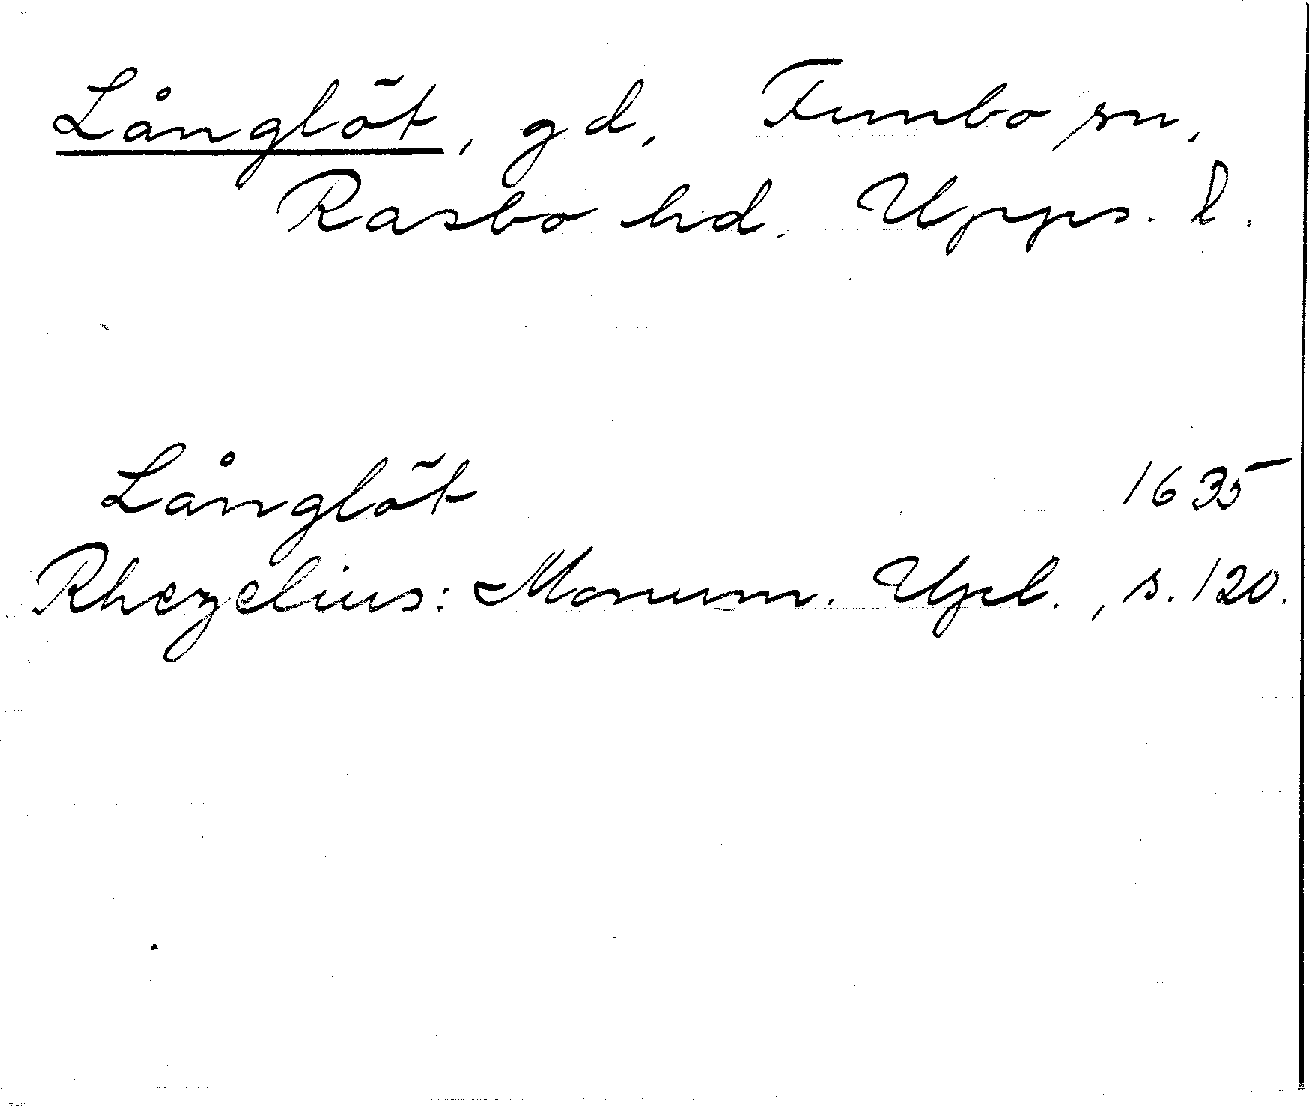 Långlöt, gd, Funbo sn,
Rasbo hd. Upps. l.
Långlöt 1635
Rhezelius: Monum. Upl., s. 120.